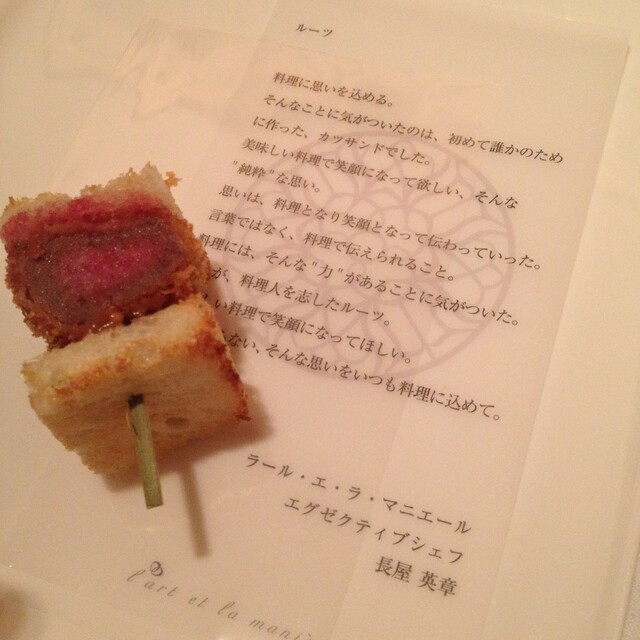 ルーツ
料理に思いを込める。
そんなことに気がついたのは、初めて誰かのため
に作った、カツサンドでした。
美味しい料理で笑顔になって欲しい、そんな
"純粋"な思い。
思いは、料理となり笑顔となって伝わっていった。
言葉ではなく、料理で伝えられること。
料理には、そんな"力"があることに気がついた。
が、料理人を志したルーツ。
い料理で笑顔になってほしい。
ない、そんな思いをいつも料理に込めて。
ラール・エ・ラ・マニエール
エグゼクティブシェフ
長屋 英章
l'art et la mani